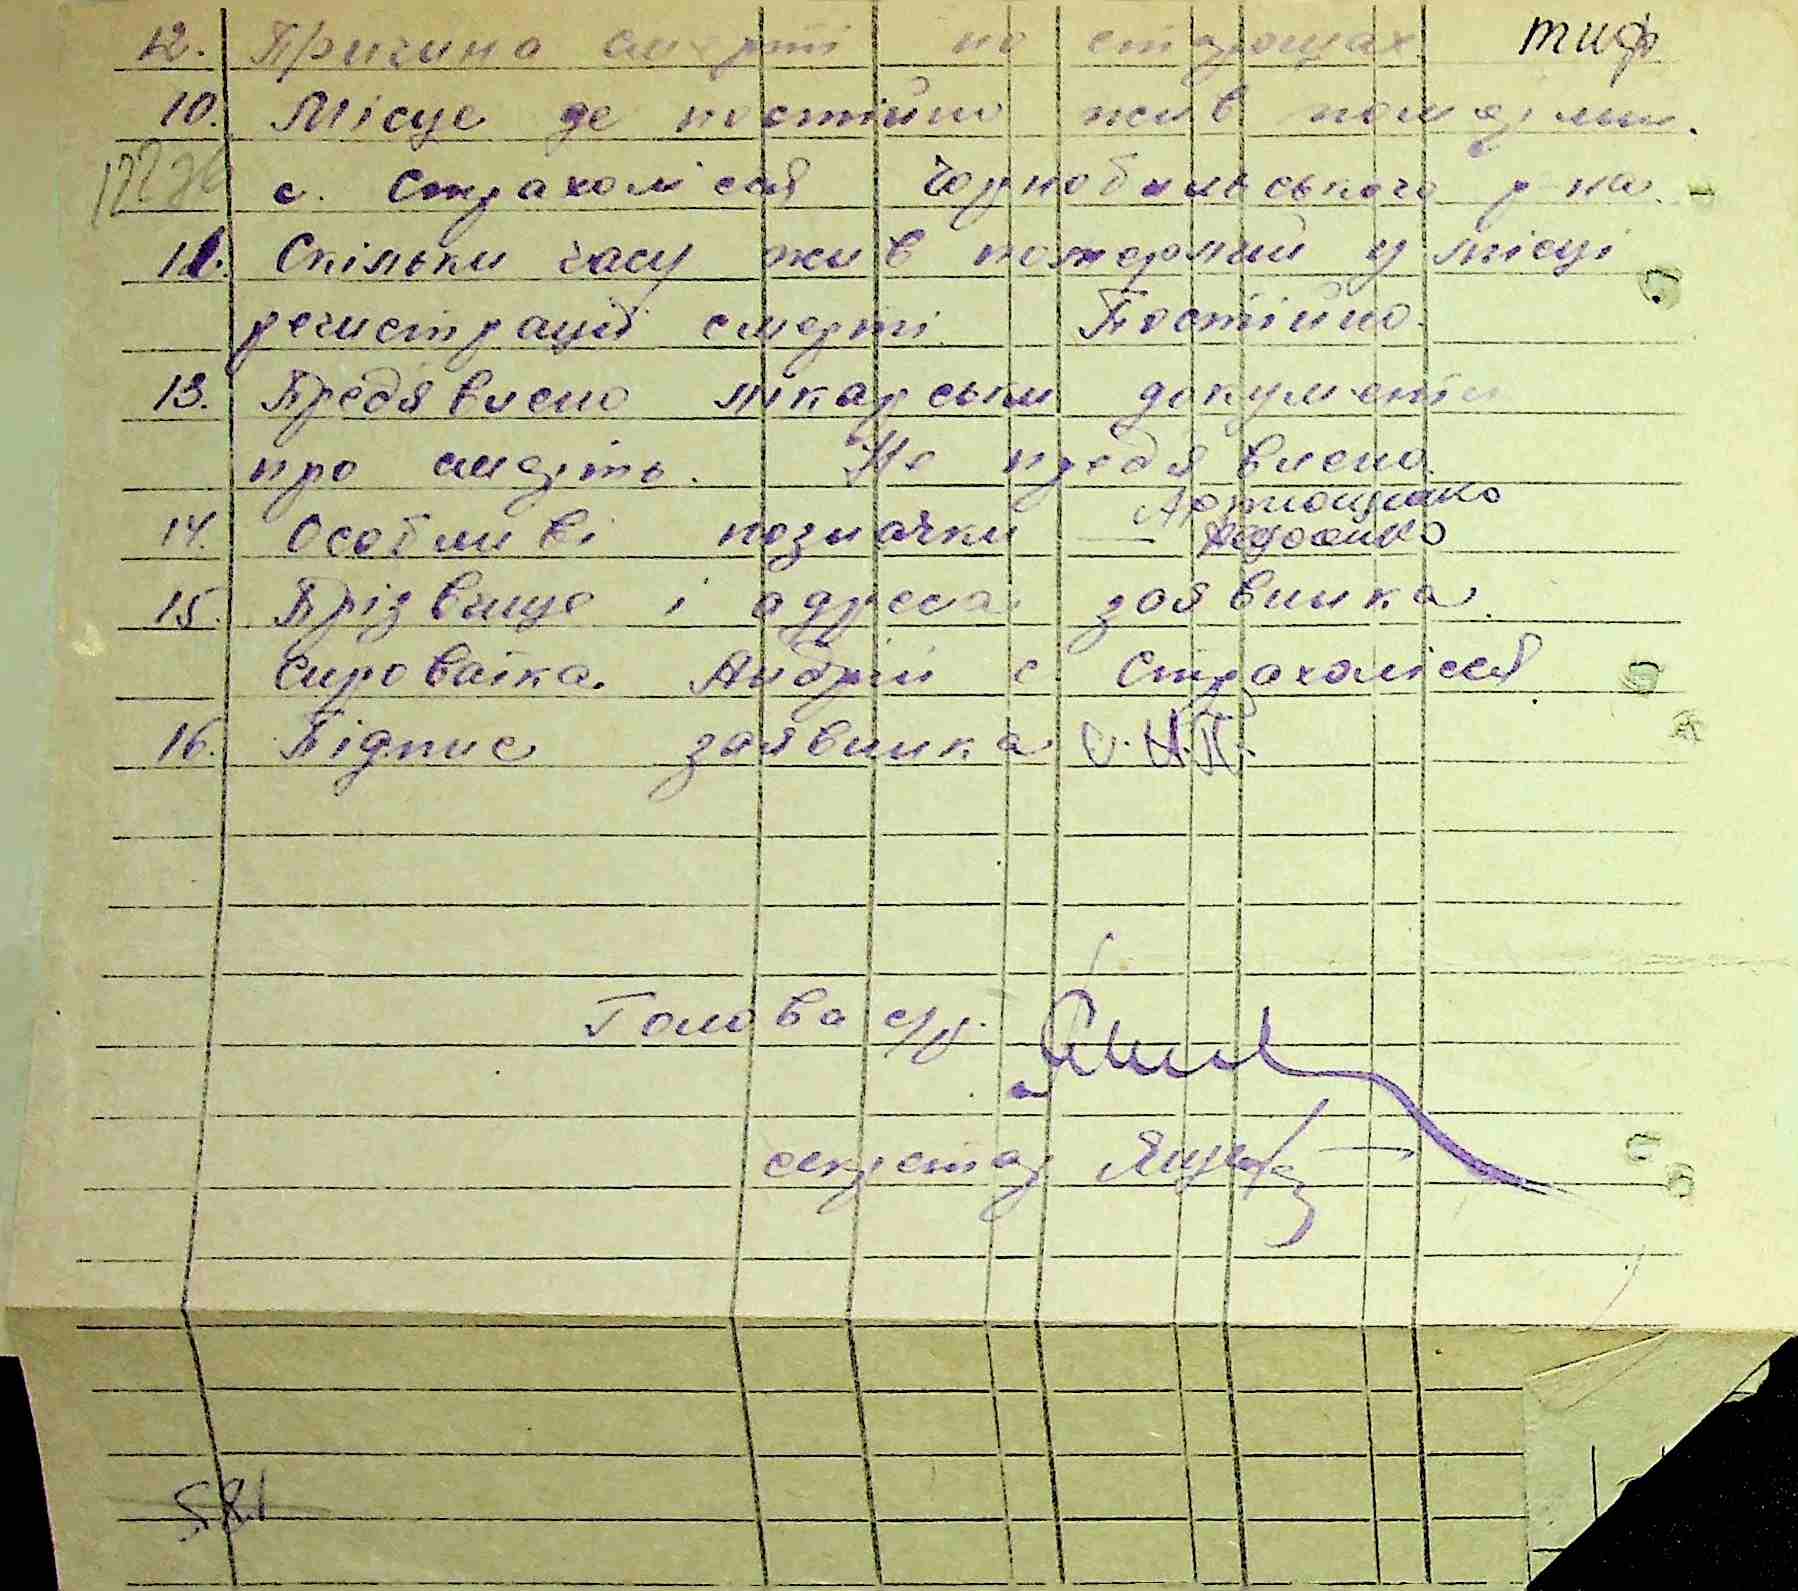 12. Причина смерті по старощах тиф
10. Місце де постійно жив померлий.
с. Страхолісся Чорнобильського р-на.
11. Скільки часу жив померлий у місці
регистрації смерті. Постійно.
13. Предявлено лікарський документ
про смерть. Не предявлено.
14. Особливі позначки —
15. Прізвище і адреса заявника.
Сироватка. Андрій с. Страхолісся.
16. Підпис заявника С.А.П.
Голова с/р.
секретар
581